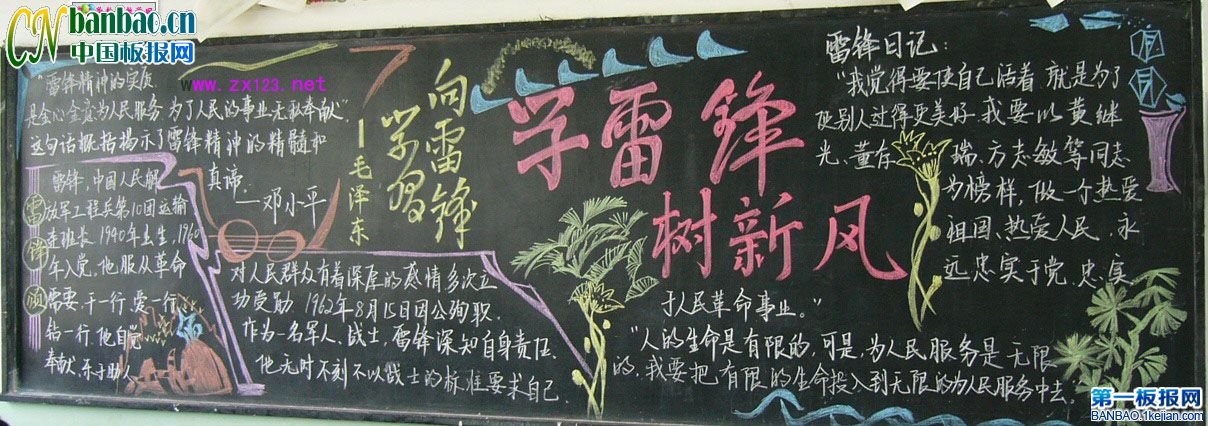 CN banbao.cn
中国板报网
www.zx123.net
"雷锋精神的实质
是全心全意为人民服务,为了人民的事业无私奉献".
这句话概括揭示了雷锋精神的精髓和
真谛.
—邓小平
向雷锋
学习
—毛泽东
学雷锋
树新风
雷锋,中国人民解
放军工程兵第10团运输
连班长.1940年出生,1960
年入党.他服从革命
需要,干一行,爱一行,
钻一行,他自觉
奉献,乐于助人
对人民群众有着深厚的感情,多次立
功受勋.1962年8月15日因公殉职.
作为一名军人、战士,雷锋深知自身责任.
他无时不刻不以战士的标准要求自己.
雷锋日记:
"我觉得要使自己活着,就是为了
使别人过得更美好.我要以黄继
光、董存瑞、方志敏等同志
为榜样,做一个热爱
祖国、热爱人民、永
远忠实于党、忠实
于人民革命事业."
"人的生命是有限的,可是,为人民服务是无限
的,我要把有限的生命投入到无限的为人民服务中去."
第一板报网
BANBAO.1kejian.com